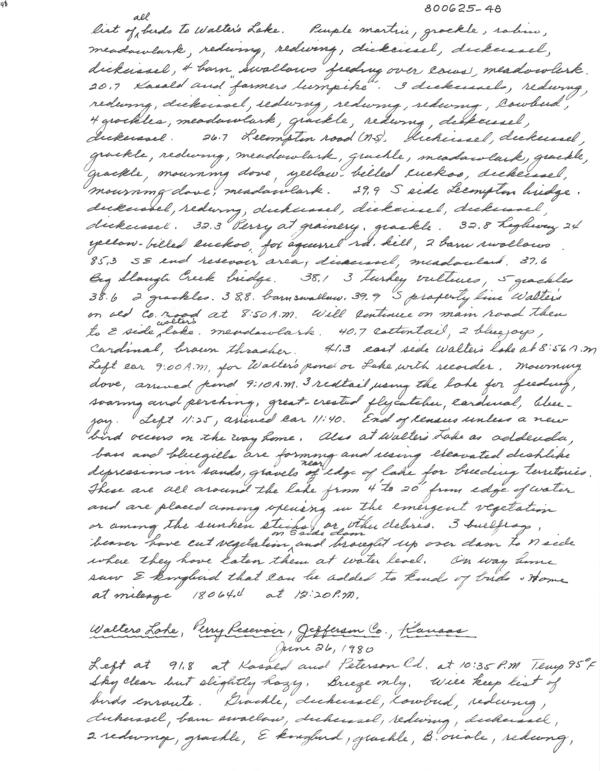 800625-48
all
list of birds to Walters Lake. Purple martin, grackle, robin,
meadowlark, redwing, redwing, dickcissel, dickcissel,
dickcissel, 4 barn swallows feeding over cows, meadowlark.
20.7 Kasold and "farmers turnpike". 3 dickcissels, redwing,
redwing, dickcissel, redwing, redwing, redwing, cowbird,
4 grackles, meadowlark, grackle, redwing, dickcissel,
dickcissel. 26.7 Lecompton road (N-S). Dickcissel, dickcissel,
grackle, redwing, meadowlark, grackle, meadowlark, grackle,
grackle, mourning dove, yellow-billed cuckoo, dickcissel,
mourning dove, meadowlark. 29.9 S side Lecompton bridge.
dickcissel, redwing, dickcissel, dickcissel, dickcissel,
dickcissel. 32.3 Perry at grainery, grackle. 32.8 highway 24
yellow-billed cuckoo, fox squirrel rd. kill, 2 barn swallows.
35.3 SE end resevoir area, dickcissel, meadowlark. 37.6
Big Slough Creek bridge. 38.1 3 turkey vultures, 5 grackles
38.6 2 grackles. 38.8 barn swallow. 39.9 S property line Walters
on old Co. road at 8:50 A.M. Will continue on main road then
to E side Walter's lake. meadowlark. 40.7 cottontail, 2 bluejays,
cardinal, brown thrasher. 41.3 east side Walter's lake at 8:56 A.M
Left car 9:00 A.M. for Walters pond or Lake with recorder. Mourning
dove, arrived pond 9:10 A.M. 3 redtail using the lake for feeding,
soaring and perching, great-crested flycatcher, cardinal, blue-
jay. Left 11:25, arrived car 11:40. End of census unless a new
bird occurs on the way home. Also at Walter's Lake as addenda,
bass and bluegills are forming and using excavated dishlike
depressions in sands, gravels near edge of lake for breeding territories.
These are all around the lake from 4' to 20' from edge of water
and are placed among opening in the emergent vegetation
or among the sunken sticks, or other debris. 3 bullfrogs,
beaver have cut vegetation on S side dam and brought up over dam to N side
where they have eaten them at water level. On way home
saw E kingbird that can be added to kinds of birds. Home
at mileage 18064.4 at 12:20 P.M.
Walters Lake, Perry Resevoir, Jefferson Co., Kansas
June 26, 1980
Left at 91.8 at Kasold and Peterson Rd. at 10:35 P.M Temp 95°F
Sky clear but slightly hazy. Breeze only. Will keep list of
birds enroute. Grackle, dickcissel, cowbird, redwing,
dickcissel, barn swallow, dickcissel, redwing, dickcissel,
2 redwings, grackle, E kingbird, grackle, B. oriole, redwing,